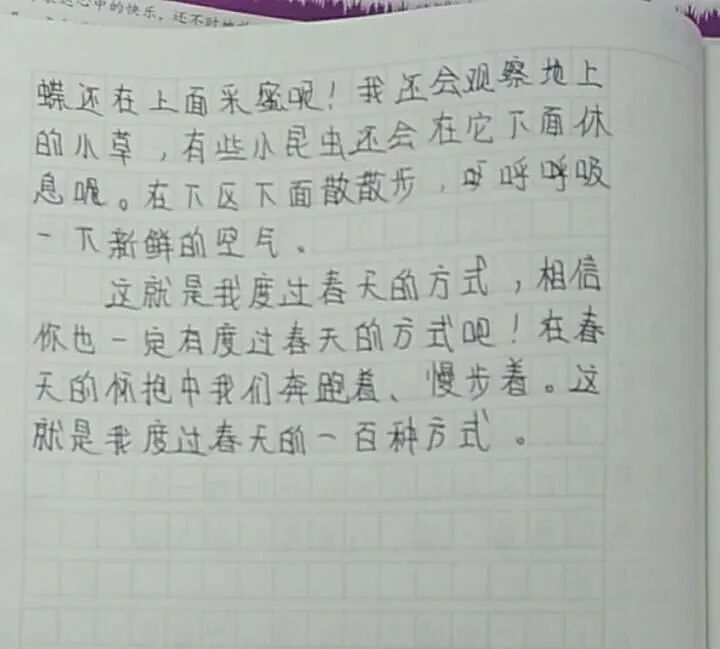 中的快乐，还不时地
蝶还在上面采蜜呢！我还会观察地上
的小草，有些小昆虫还会在它下面休
息呢。在下区下面散散步，呼呼吸
一下新鲜的空气。
这就是我度过春天的方式，相信
你也一定有度过春天的方式吧！在春
天的怀抱中我们奔跑着、慢步着。这
就是我度过春天的一百种方式。